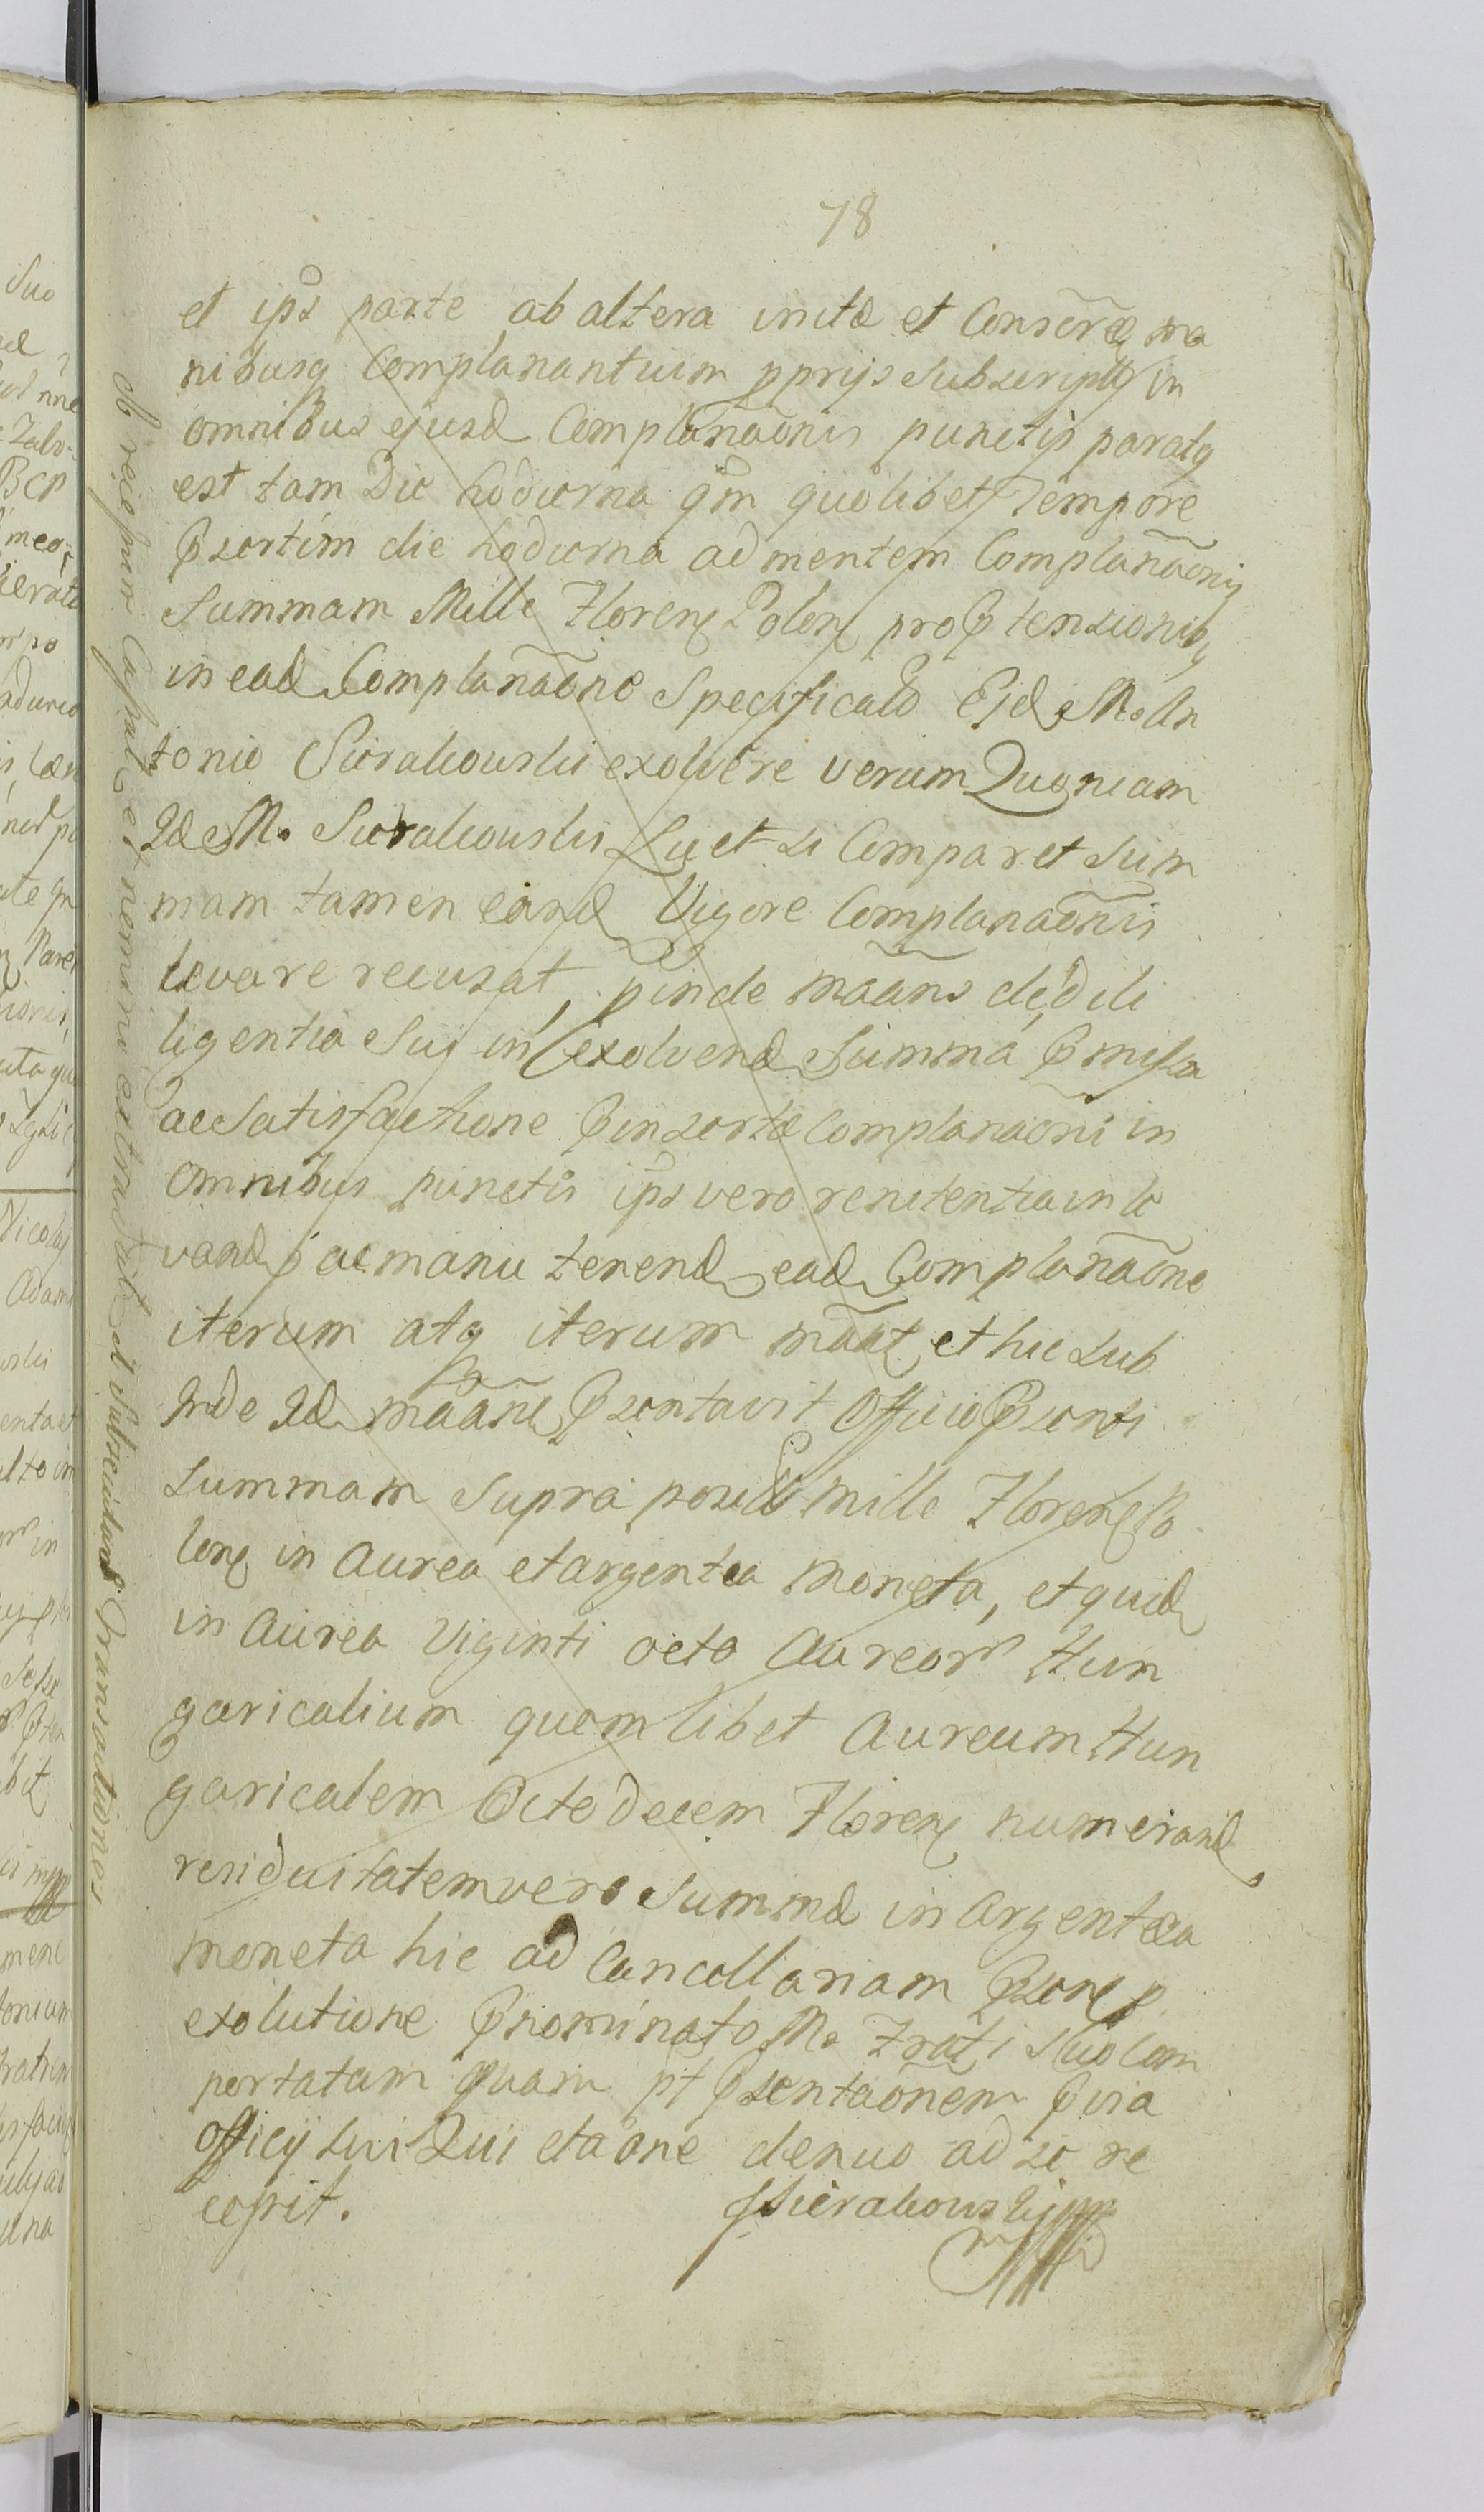 78
et ips parte ab altera initæ et Conscrõæ ma
nibusq Complanantium pprijs Subscriptæ in
omnibus ejusd Complanaõnis punctis paratq
est tam Die hodierna qm quolibet Tempore
Psertim die hodierna ad mentem Complanaõnis
Summam Mille Floren Polon pro Ptensionibq
in ead Complanaõne Specificato Ejd M. An
tonio Sierakowski exolvere verum Quoniam
Id M. Sierakowski Licet si Comparet Sum
mam tamen eand Vigore Complanaõnis
levare recusat, pinde mãans de dili
ligentia Sui in exolvend Summa Pmissa
ac Satisfactione Pinsertæ Complanaõni in
omnibus punctis ips vero renitentia in le
vand ac manu tenend ead Complanaõne
iterum atq iterum mãat et hic sub
inde Id mãans Psentavit Officio Psenti
Summam Supra posit mille Floren Po
lon in Aurea et argentea Moneta, et quid
in Aurea Viginti octo Aureor Hun
garicalium quemlibet Aureum Hun
garicalem Octodecem Floren numerand
residuitatem vero Summæ in Argentea
Moneta hic ad Cancellariam Psen p
exolutione Pnominato M. Frati Suo Com
portatam quam pt Psentaõnem Pvia
Officij Sui Quietaõne denuo ad se re
cepit.
Sierakowski mpp
Ob receptum Capital et nemini extradat et Subsecutas Transactiones